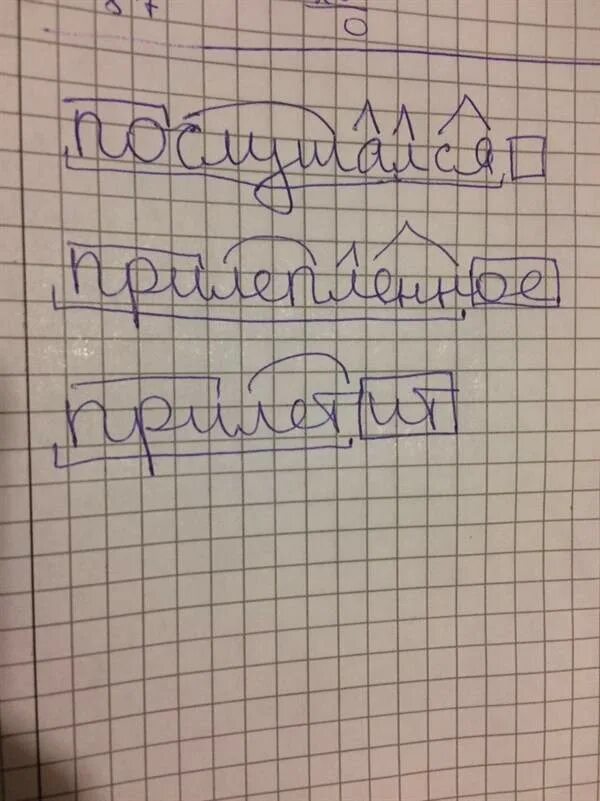 0
послушался
прилепленное
прилетит